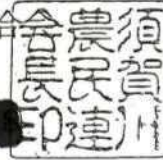 須賀川
農民連
會長印